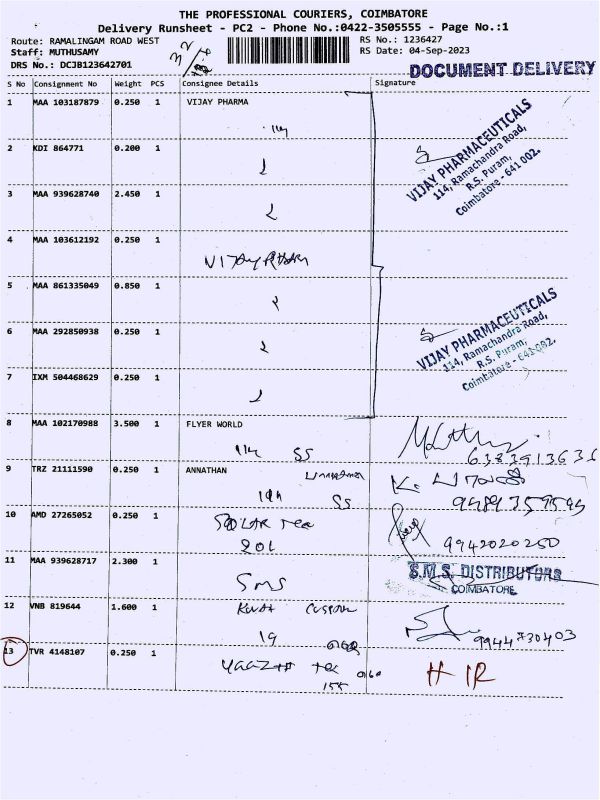 THE PROFESSIONAL COURIERS, COIMBATORE
Delivery Runsheet - PC2 - Phone No.:0422-3505555 - Page No.:1
Route: RAMALINGAM ROAD WEST
RS No.: 1236427
Staff: MUTHUSAMY
RS Date: 04-Sep-2023
DRS No.: DCJB123642701
DOCUMENT DELIVERY
S No Consignment No Weight PCS Consignee Details Signature
1 MAA 103187879 0.250 1 VIJAY PHARMA
114
VIJAY PHARMACEUTICALS
114, Ramachandra Road,
R.S. Puram,
Coimbatore - 641 002.
2 KDI 864771 0.200 1
3 MAA 939628740 2.450 1
4 MAA 103612192 0.250 1
VIJAY PHARM
5 MAA 861335049 0.850 1
6 MAA 292850938 0.250 1
VIJAY PHARMACEUTICALS
114, Ramachandra Road,
R.S. Puram,
Coimbatore - 641 002.
7 IXM 504468629 0.250 1
8 MAA 102170988 3.500 1 FLYER WORLD
114 SS
9 TRZ 21111590 0.250 1 ANNATHAN
SS
10 AMD 27265052 0.250 1
201
9942020250
11 MAA 939628717 2.300 1
SMS
S.M.S. DISTRIBUTORS
COIMBATORE
12 VNB 819644 1.600 1
19
9944730403
13 TVR 4148107 0.250 1
155